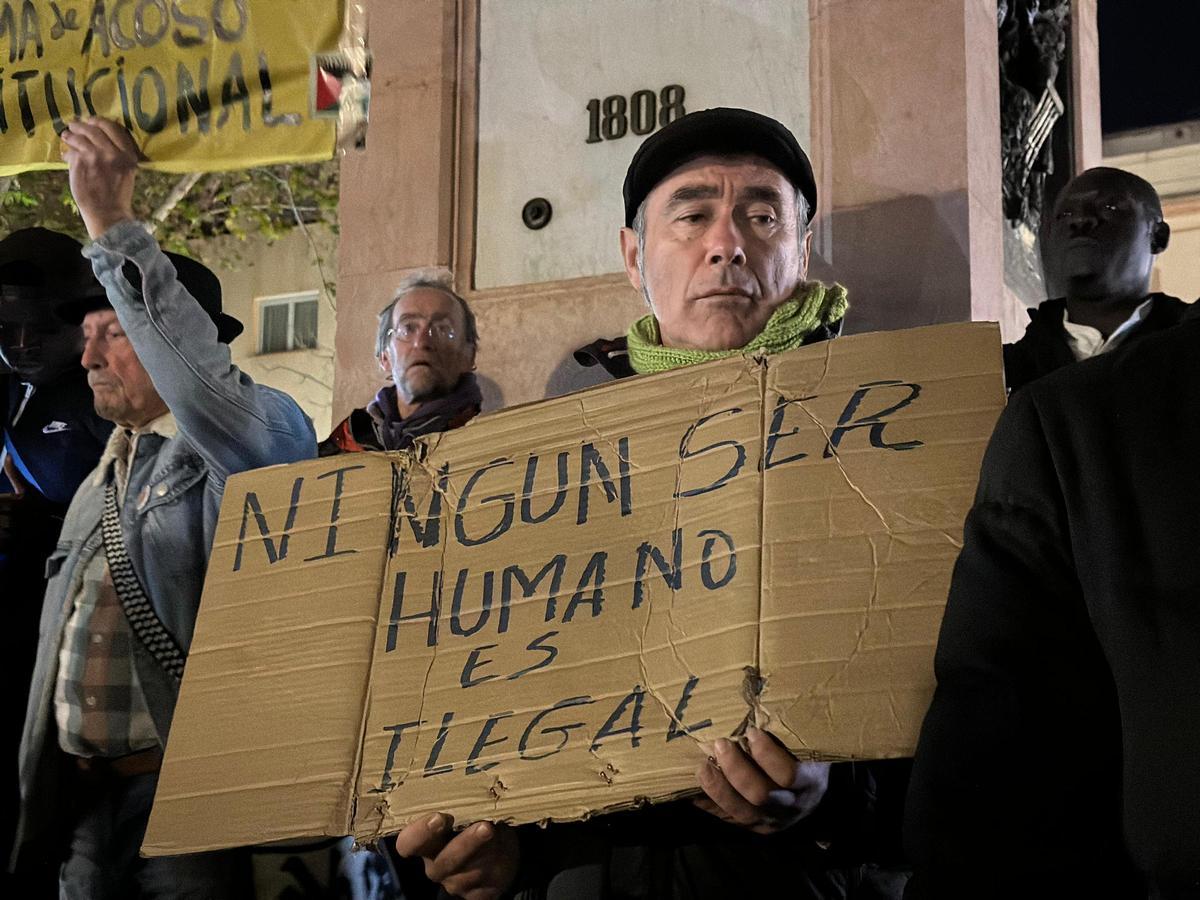 MA de ACOSO
ITUCIONAL
1808
NINGUN SER
HUMANO
ES
ILEGAL